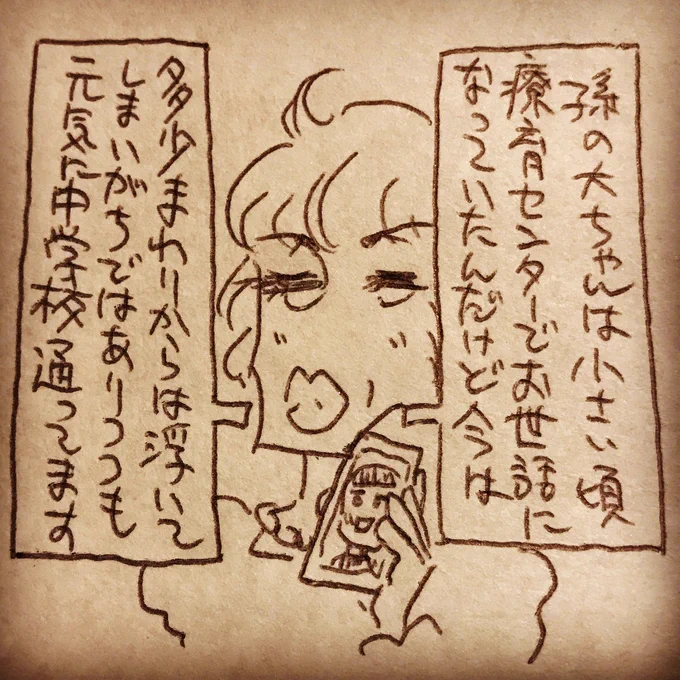 孫の大ちゃんは小さい頃
療育センターでお世話に
なっていたんだけど今は
多少まわりからは浮いて
しまいがちではありつつも
元気に中学校通ってます